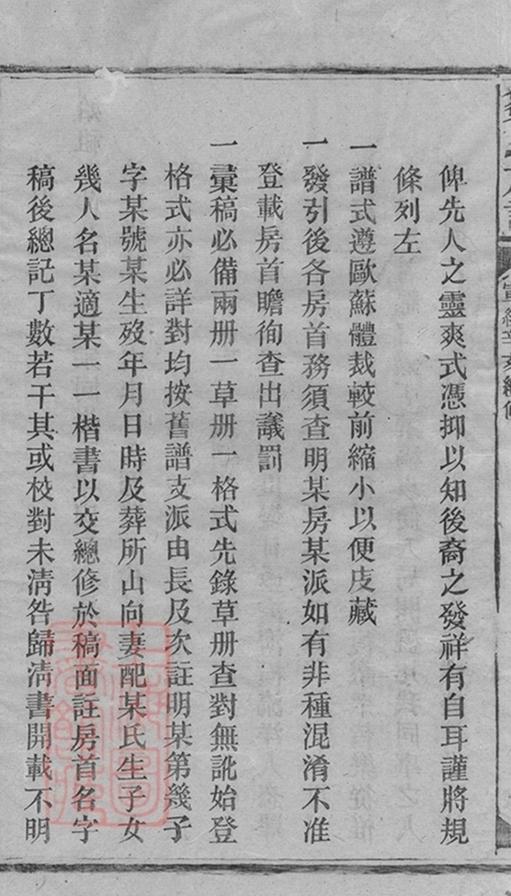 俾先人之靈爽式憑抑以知後裔之發祥有自耳謹將規
條列左
一譜式遵歐蘇體裁較前縮小以便庋藏
一發引後各房首務須查明某房某派如有非種混淆不准
登載房首瞻徇查出議罰
一彙稿必備兩册一草册一格式先錄草册查對無訛始登
格式亦必詳對均按舊譜支派由長及次註明某第幾子
字某號某生歿年月日時及葬所山向妻配某氏生子女
幾人名某適某一一楷書以交總修於稿面註房首名字
稿後總記丁數若干其或校對未清咎歸清書開載不明